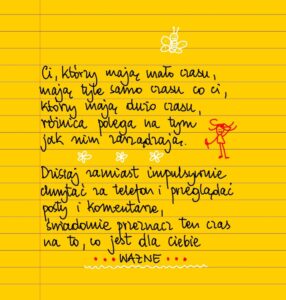 Ci, którzy mają mało czasu,
mają tyle samo czasu co ci,
którzy mają dużo czasu,
różnica polega na tym
jak nim zarządzają.
Dzisiaj zamiast impulsywnie
chwytać za telefon i przeglądać
posty i komentarze,
świadomie przeznacz ten czas
na to, co jest dla Ciebie
WAŻNE